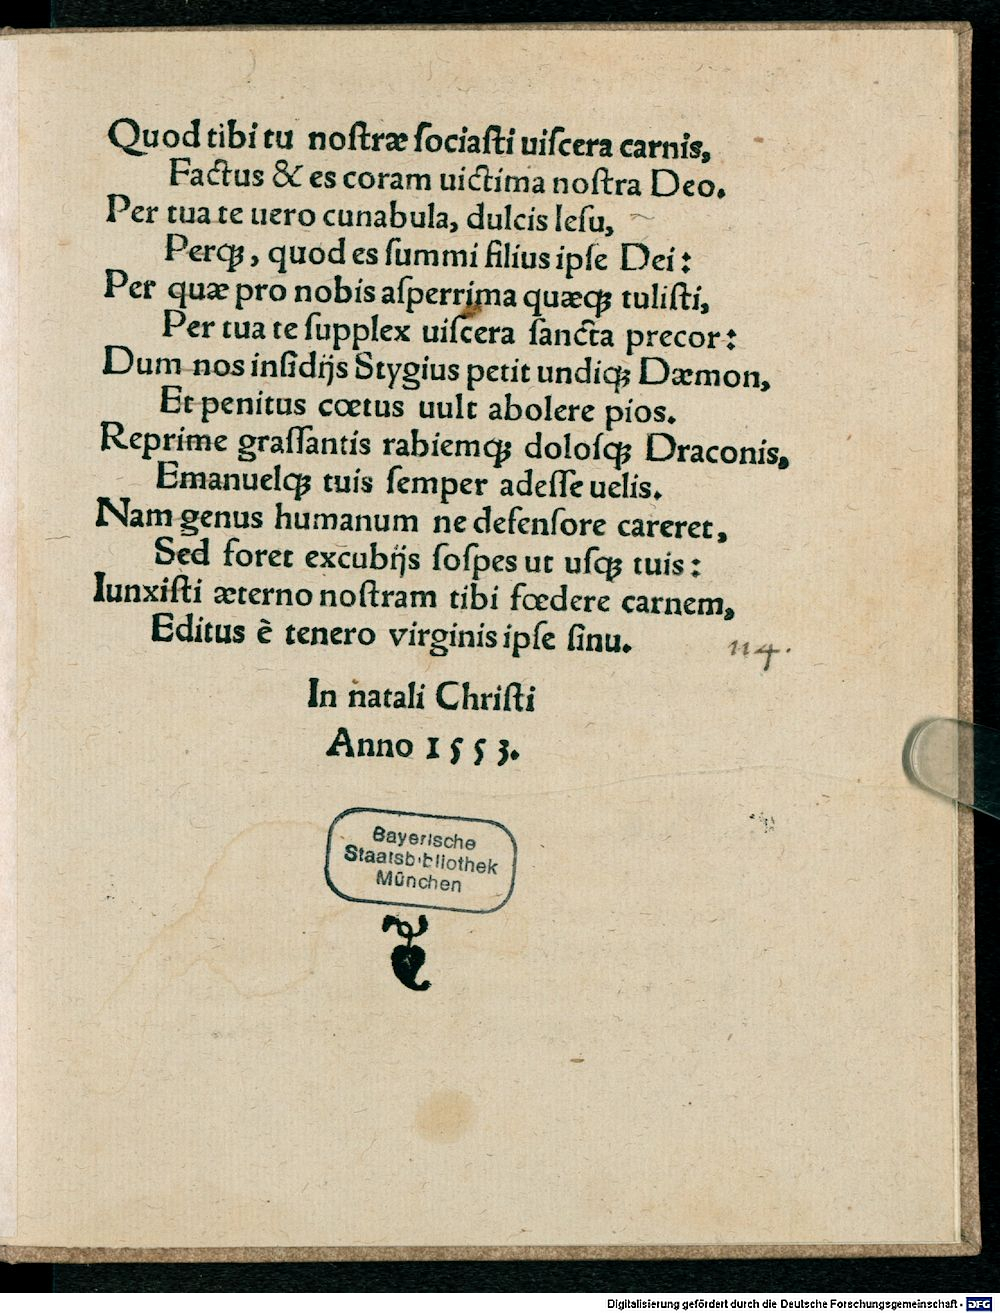 Quod tibi tu noſtræ ſociaſti uiſcera carnis,
Factus & es coram uictima noſtra Deo.
Per tua te uero cunabula, dulcis Ieſu,
Perq́;, quod es ſummi filius ipſe Dei:
Per quæ pro nobis aſperrima quæq; tuliſti,
Per tua te ſupplex uiſcera ſancta precor:
Dum nos inſidijs Stygius petit undiq; Dæmon,
Et penitus cœtus uult abolere pios.
Reprime graſſantis rabiemq; doloſq; Draconis,
Emanuelq; tuis ſemper adeſſe uelis.
Nam genus humanum ne defenſore careret,
Sed foret excubijs ſoſpes ut uſq; tuis:
Iunxiſti æterno noſtram tibi fœdere carnem,
Editus è tenero virginis ipſe ſinu.
114.
In natali Chriſti
Anno 1553.
Bayerische
Staatsbibliothek
München
Digitalisierung gefördert durch die Deutsche Forschungsgemeinschaft - DFG